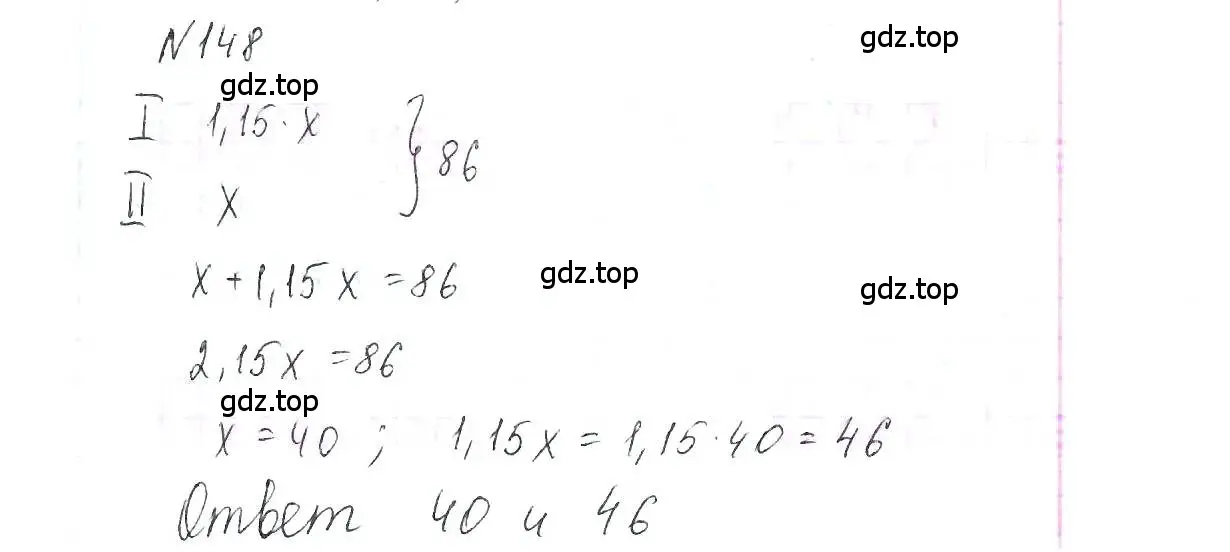 N148
gdz.top
gdz.top
I 1,15·x
II x
} 86
x+1,15x=86
gdz.top
gdz.top
2,15x=86
gdz.top
x=40; 1,15x=1,15·40=46
Ответ 40 и 46